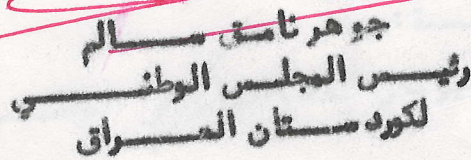 جوهر نامق سالم
رئيس المجلس الوطني
لكوردستان العراق